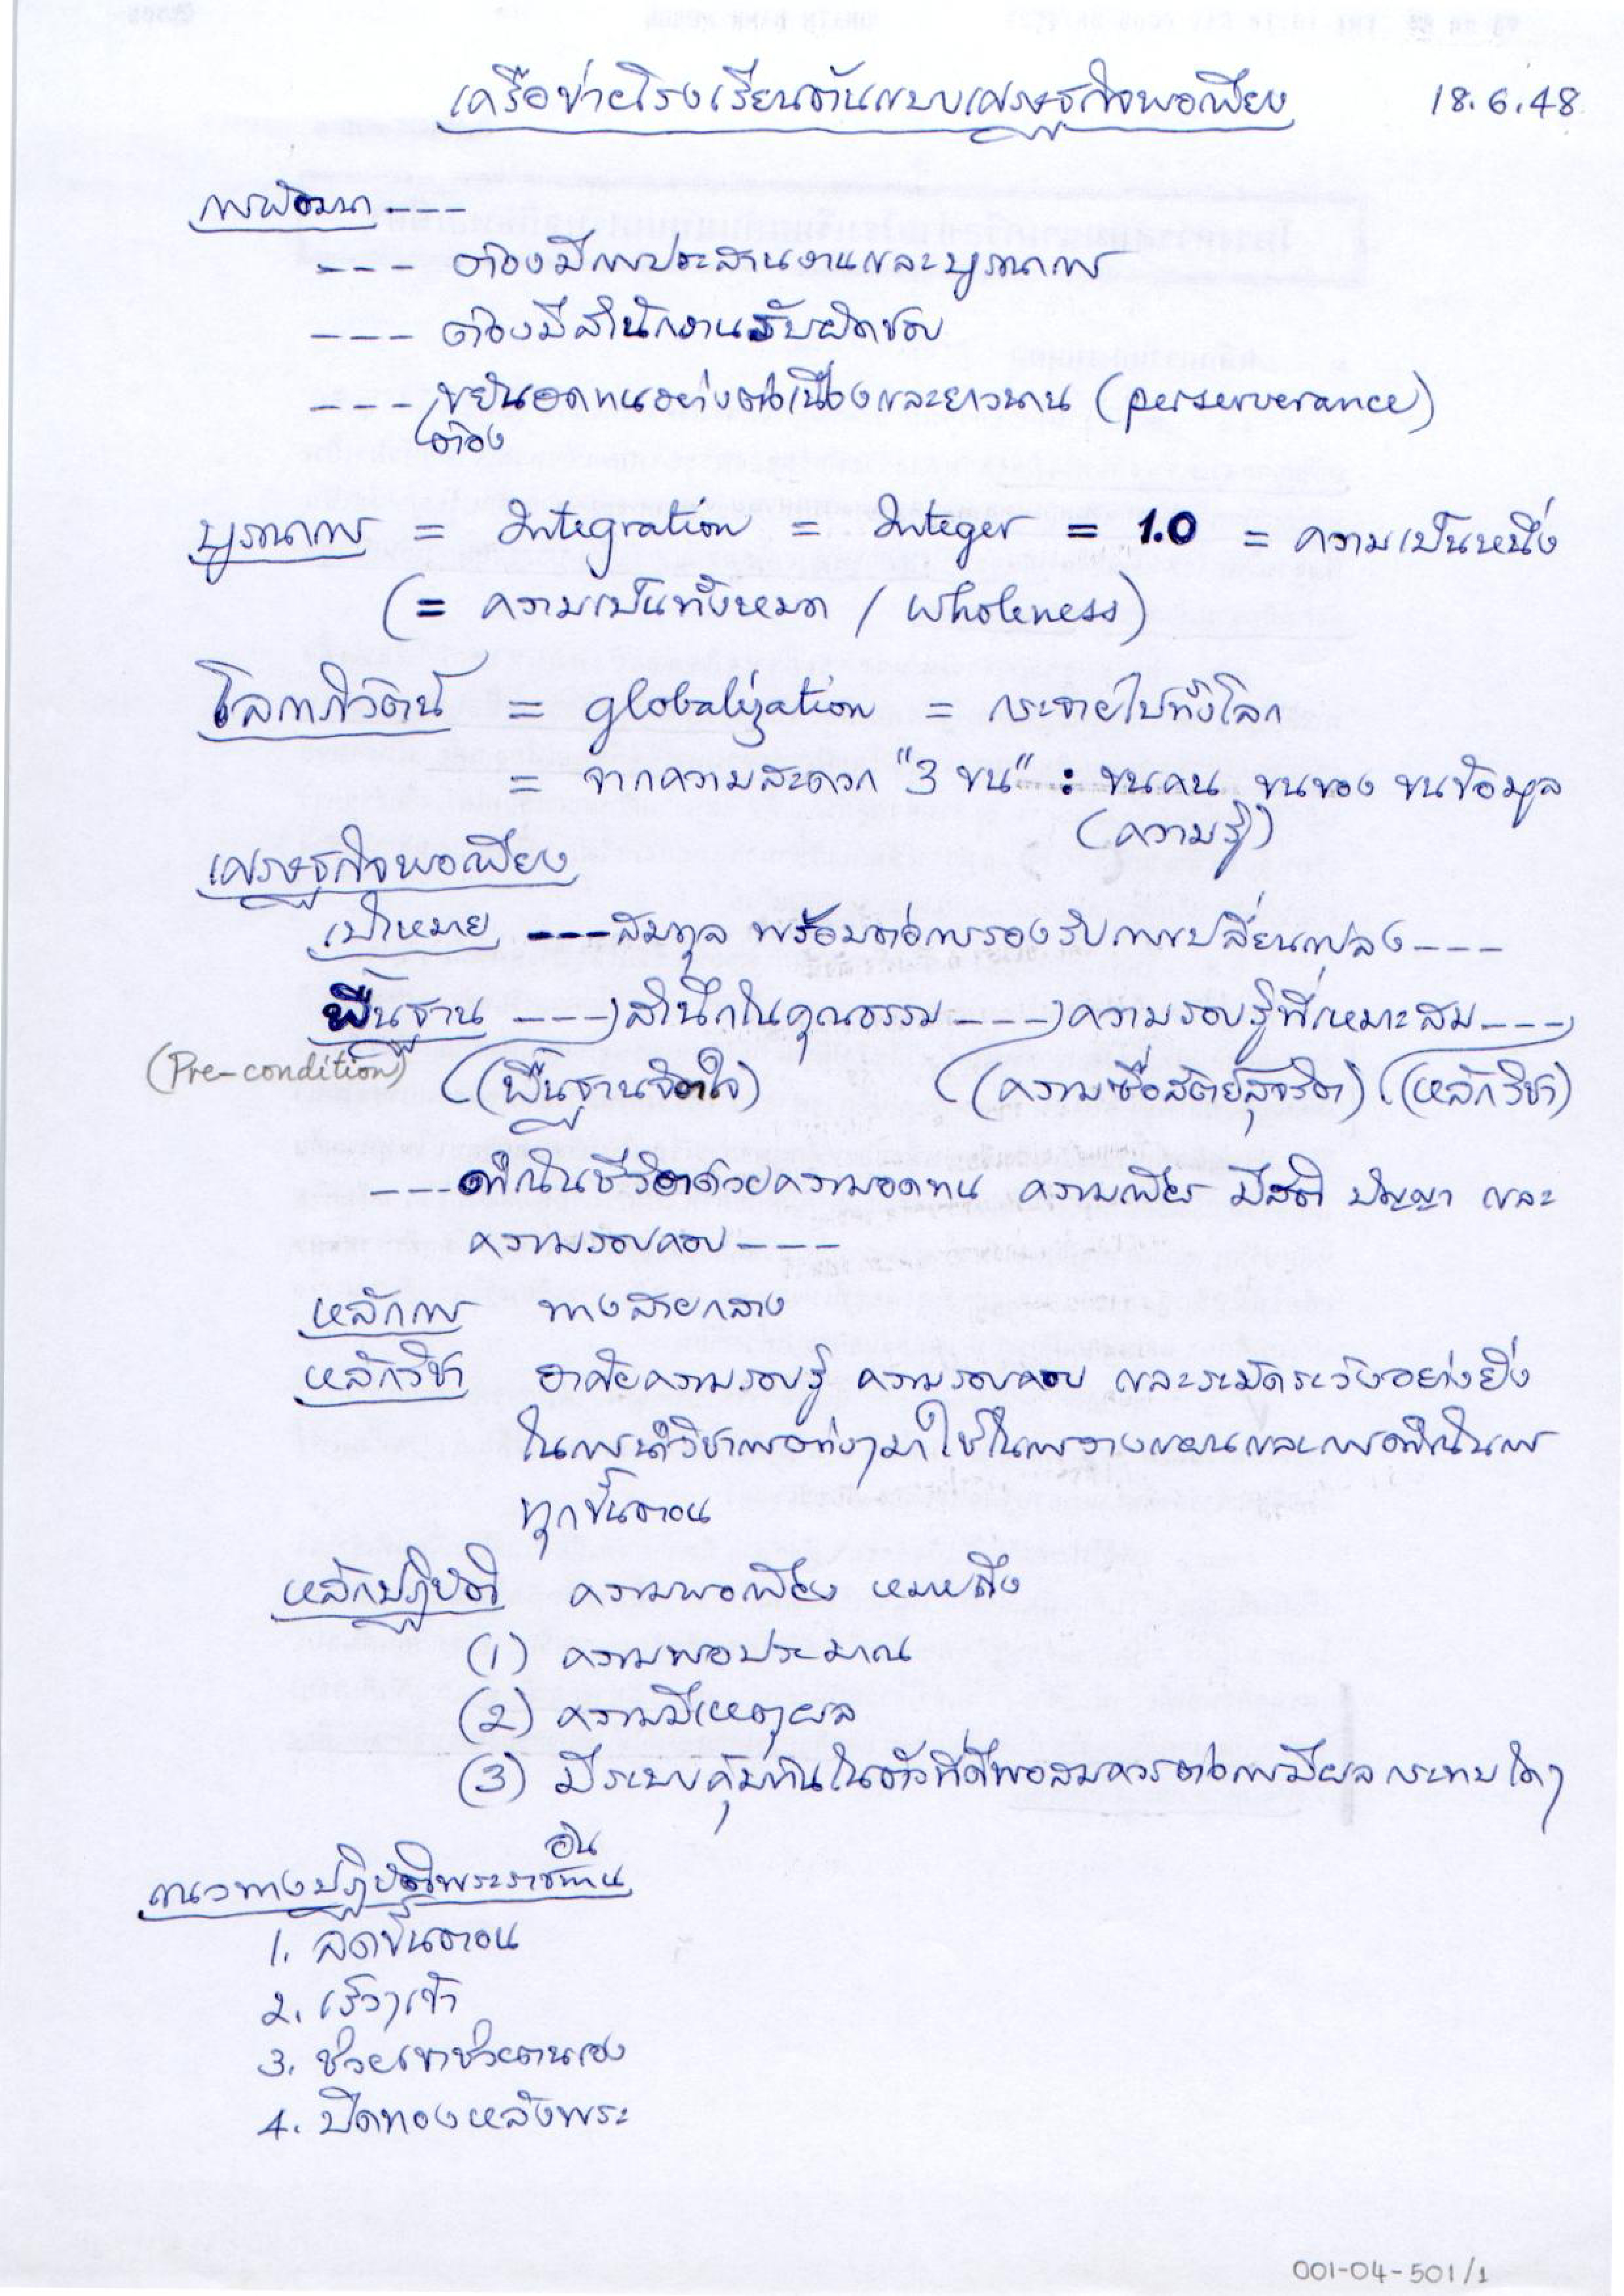 เครือข่ายโรงเรียนต้นแบบเศรษฐกิจพอเพียง 18.6.48
การพัฒนา ---
--- ต้องมีการประสานงานและบูรณาการ
--- ต้องมีสำนักงานรับผิดชอบ
--- ขยันอดทนอย่างต่อเนื่องและยาวนาน (perserverance)
ต้อง
บูรณาการ = Integration = Integer = 1.0 = ความเป็นหนึ่ง
(= ความเป็นทั้งหมด / wholeness)
โลกาภิวัตน์ = globalization = กระจายไปทั่วโลก
= จากความสะดวก "3 ขน" : ขนคน ขนของ ขนข้อมูล
(ความรู้)
เศรษฐกิจพอเพียง
เป้าหมาย --- สมดุล พร้อมต่อการรองรับการเปลี่ยนแปลง ---
พื้นฐาน --- สำนึกในคุณธรรม --- ความรอบรู้ที่เหมาะสม ---
(Pre-condition) (พื้นฐานจิตใจ) (ความซื่อสัตย์สุจริต) (หลักวิชา)
--- ดำเนินชีวิตด้วยความอดทน ความเพียร มีสติ ปัญญา และ
ความรอบคอบ ---
หลักการ ทางสายกลาง
หลักวิชา อาศัยความรอบรู้ ความรอบคอบ และระมัดระวังอย่างยิ่ง
ในการนำวิชาการต่างๆ มาใช้ในการวางแผนและการดำเนินการ
ทุกขั้นตอน
หลักปฏิบัติ ความพอเพียง หมายถึง
(1) ความพอประมาณ
(2) ความมีเหตุผล
(3) มีระบบคุ้มกันในตัวที่ดีพอสมควรต่อการมีผลกระทบใดๆ
อัน
แนวทางปฏิบัติพระราชทาน
1. ลดขั้นตอน
2. เร็วๆ เข้า
3. ช่วยเขาช่วยตนเอง
4. ปิดทองหลังพระ
001-04-501/1